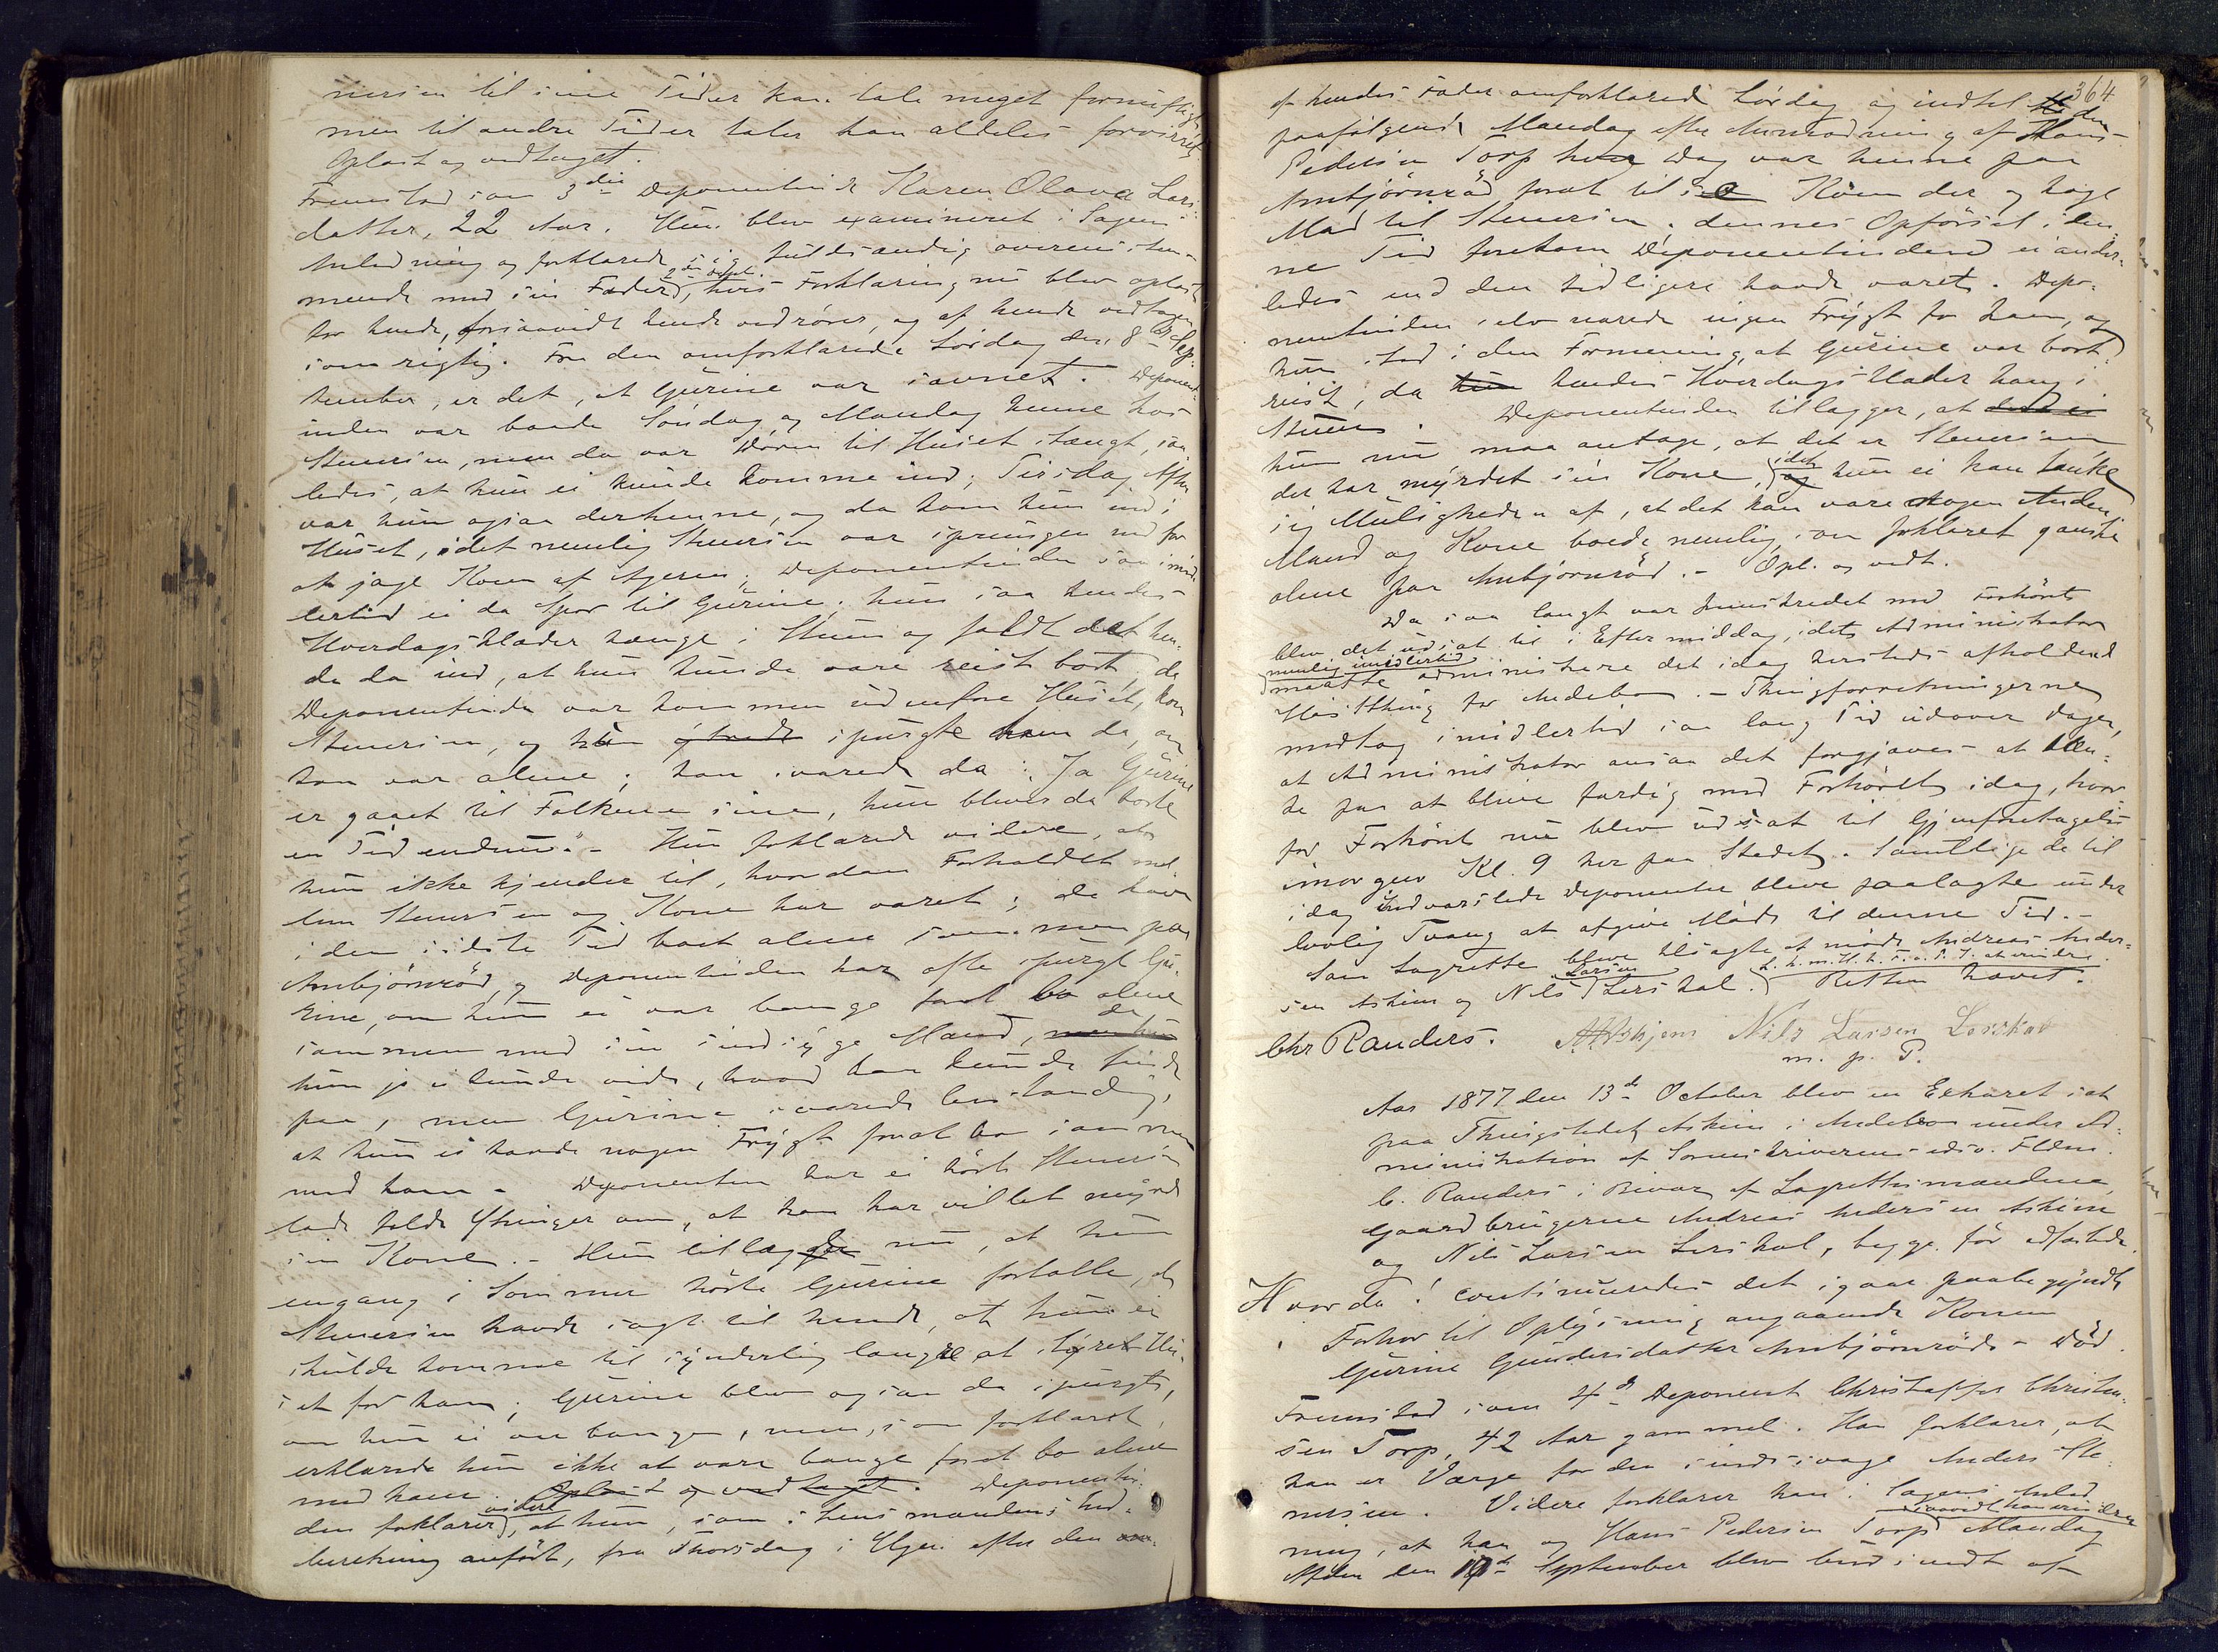 nersen til sine Tider kan tale meget fornuftigt,
men til andre Tider taler han aldeles forvirret.
Oplæst og vedtaget.
Fremstod som 3die Deponentinde Karen Olava Lars-
datter, 22 Aar. Hun blev examineret i Sagens
Anledning og forklarede sig fuldstændig overensstem-
mende med sin Fader, 2den Dept. hvis Forklaring nu blev oplæst
for hende, forsaavidt hende vedrører, og af hende vedtagen
som rigtig. Fra den omforklarede Lørdag den 8de Sep-
tember, er det, at Gurine var savnet. Deponent-
inden var baade Søndag og Mandag henne hos
Stenersen, men da var Døren til Huset stængt, saa-
ledes, at hun ei kunde komme ind; Tirsdag Aften
var hun ogsaa derhenne, og da kom hun ind i
Huset, idet nemlig Stenersen var sprungen ud for
at jage Koen af Ageren; Deponentinden saa imid-
lertid ei da Spor til Gurine; hun saa hendes
Hverdagsklæder hænge i Stuen og faldt det hen-
de da ind, at hun kunde være reist bort; da
Deponentinden var kommen udenfor Huset, kom
Stenersen, og hun spurgte ham da, om
han var alene; han svarede da: "Ja Gurine
er gaaet til Folkene sine, hun bliver da borte
en Tid endnu". - Hun forklarede videre, at
hun ikke kjender til, hvordan Forholdet mel-
lem Stenersen og Kone har været; de have
i den sidste Tid boet alene sammen paa
Anbjørnrød, og Deponentinden har ofte spurgt Gu-
rine, om hun ei var bange forat bo alene
sammen med sin sindssyge Mand, da
hun jo ei kunde vide, hvad han kunde finde
paa, men Gurine svarede bestandig,
at hun ei havde nogen Frygt forat bo sammen
med ham. - Deponenten har ei hørt Stenersen
lade falde Ytringer om, at han har villet myrde
sin Kone. - Hun tillægger nu, at hun
engang i Sommer hørte Gurine fortælle, at
Stenersen havde sagt til hende, at hun ei
skulde komme til synderlig længe at styret Hu-
set for ham; Gurine blev ogsaa da spurgt,
om hun ei var bange, men, som forklaret,
erklærede hun ikke at være bange forat bo alene
med ham. Oplæst og vedtaget. Deponentin-
den forklarer videre, at hun, som i Lensmandens Ind-
beretning anført, fra Thorsdag i Ugen efter den om-
364
af hendes Fader omforklarede Lørdag og indtil den
paafølgende Mandag efter Anmodning af Hans
Pedersen Torp hver Dag var henne paa
Anbjørnrød forat til see Koen der og lage
Mad til Stenersen; dennes Opførsel i den-
ne Tid forekom Deponentinden ei ander-
ledes end den tidligere havde været. Depo-
nentinden selv nærede ingen Frygt for ham, og
hun stod i den Formening, at Gurine var bort-
reist, da hun hendes Hverdagsklæder hang i
Stuen. Deponentinden tillægger, at
hun nu maa antage, at det er Stenersen
der har myrdet sin Kone, idet hun ei kan tænke
sig Muligheden af, at det kan være nogen Anden
Mand og Kone boede nemlig, som forklaret ganske
alene paa Anbjørnrød. - Opl. og vedt.
Da saa langt var fremskredet med Forhøret
blev det udsat til i Eftermiddag, idet Administrator
nemlig imidlertid
maatte administrere det idag hersteds afholdende
Høstthing for Andebo. - Thingforretningerne
medtog imidlertid saa lang Tid udover Dagen,
at Administrator ansaa det forgjæves at ten-
ke paa at blive færdig med Forhøret idag, hvor-
for Forhøret nu blev udsat til Gjenforetagelse
imorgen Kl. 9 her paa Stedet. Samtlige de til
idag indvarslede Deponenter bleve paalagte under
lovlig Tvang at afgive Møde til denne Tid. -
Som Lagrette bleve tilsagte at møde Andreas Ander-
sen Askim og Nils Larsen Lerskal. Retten hævet.
Chr Randers. AAAskjem Nils Larsen Lerskal
m. p. P.
Aar 1877 den 13de October blev en Extraret sat
paa Thingstedet Askim i Andebo under Ad-
ministration af Sorenskriverens edsv. Fldm.
C. Randers i Bivær af Lagrettesmændene,
Gaardbrugerne Andreas Andersen Askim
og Nils Larsen Lerskal, begge før edfæstede.
Hvorda: continueredes det igaar paabegyndte
Forhør til Oplysning angaaende Konen
Gurine Gundersdatter Anbjørnrøds Død.
Fremstod som 4de Deponent Christoffer Christen-
sen Torp, 42 Aar gammel. Han forklarer, at
han er Værge for den sindssvage Anders Ste-
nersen. Videre forklarer han i Sagens Anled-
ning, at han og Hans Pedersen Torp saavidt han erindrer Mandag
Aften den 17de September blev bud sendt af